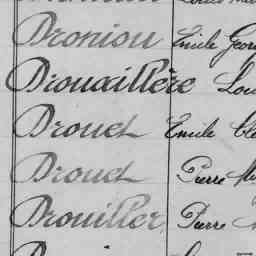 Droniou Emile Geor
Drouaillère Lou
Drouet Emile Cle
Drouet Pierre
Drouiller Pierre